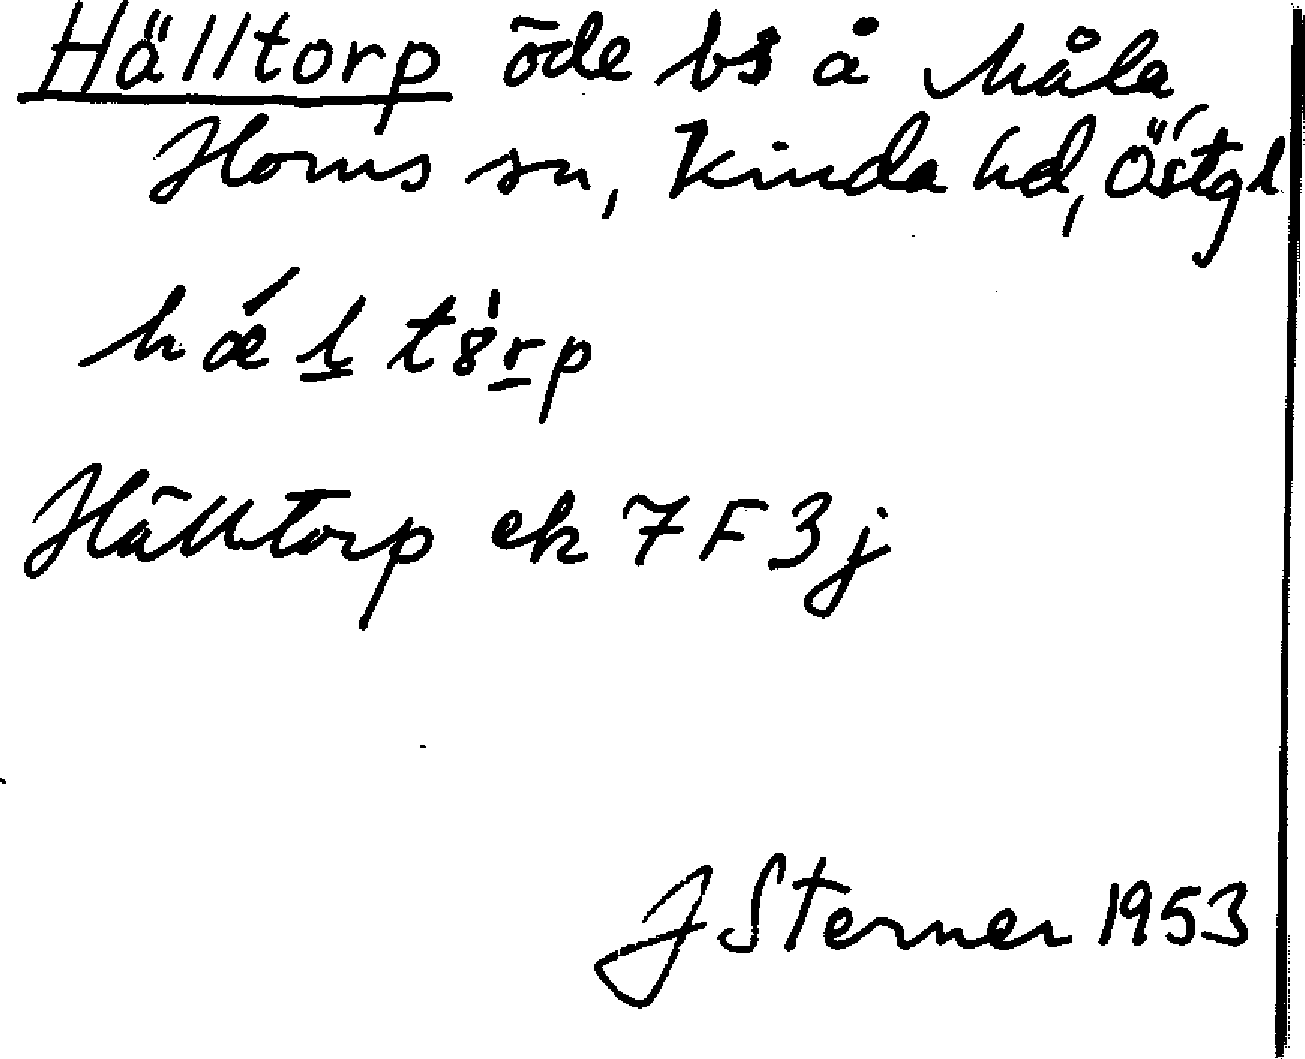 Hälltorp öde bs å Måla,
Horns sn, Kinda hd, Östgl
hǽl tȯrp
Hälltorp ek 7 F 3 j
J Sterner 1953